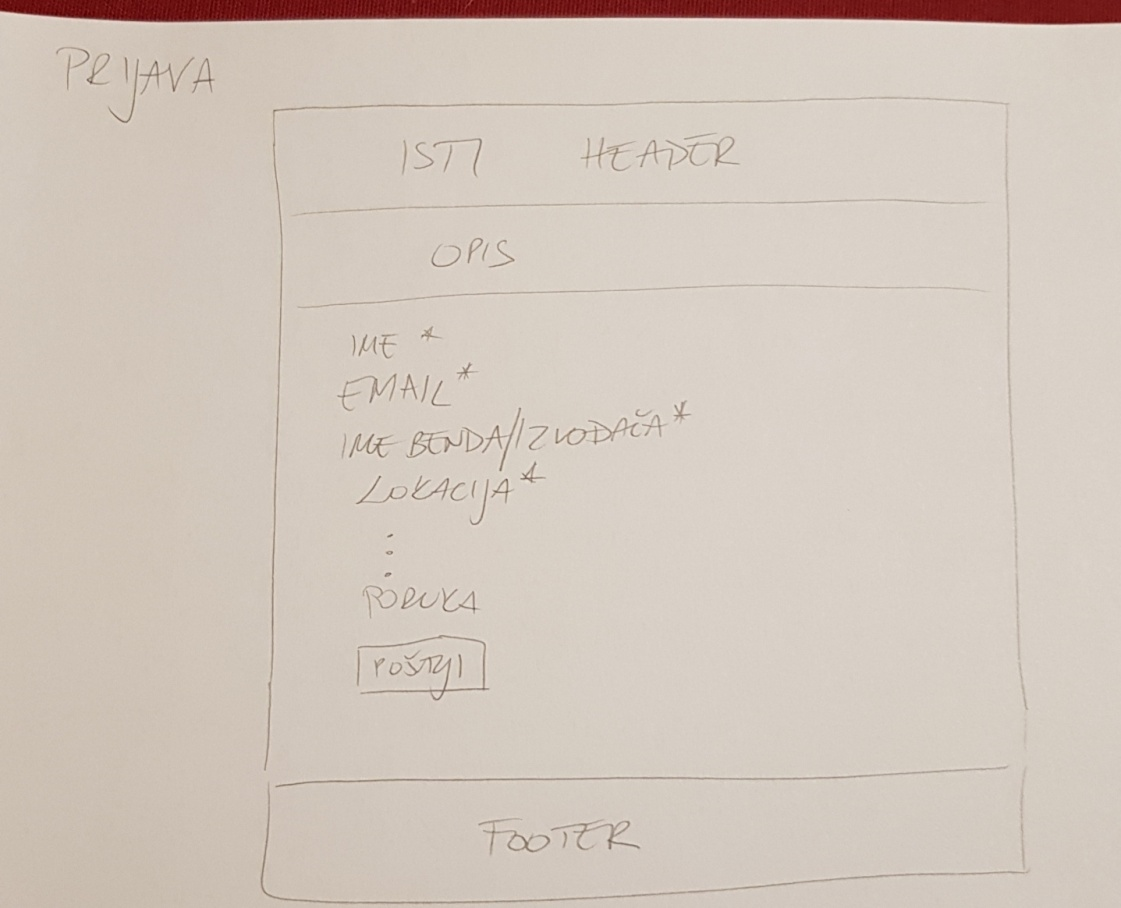 PRIJAVA
ISTI HEADER
OPIS
IME *
EMAIL *
IME BENDA/IZVOĐAČA *
LOKACIJA *
⋮
PORUKA
POŠTJI
FOOTER